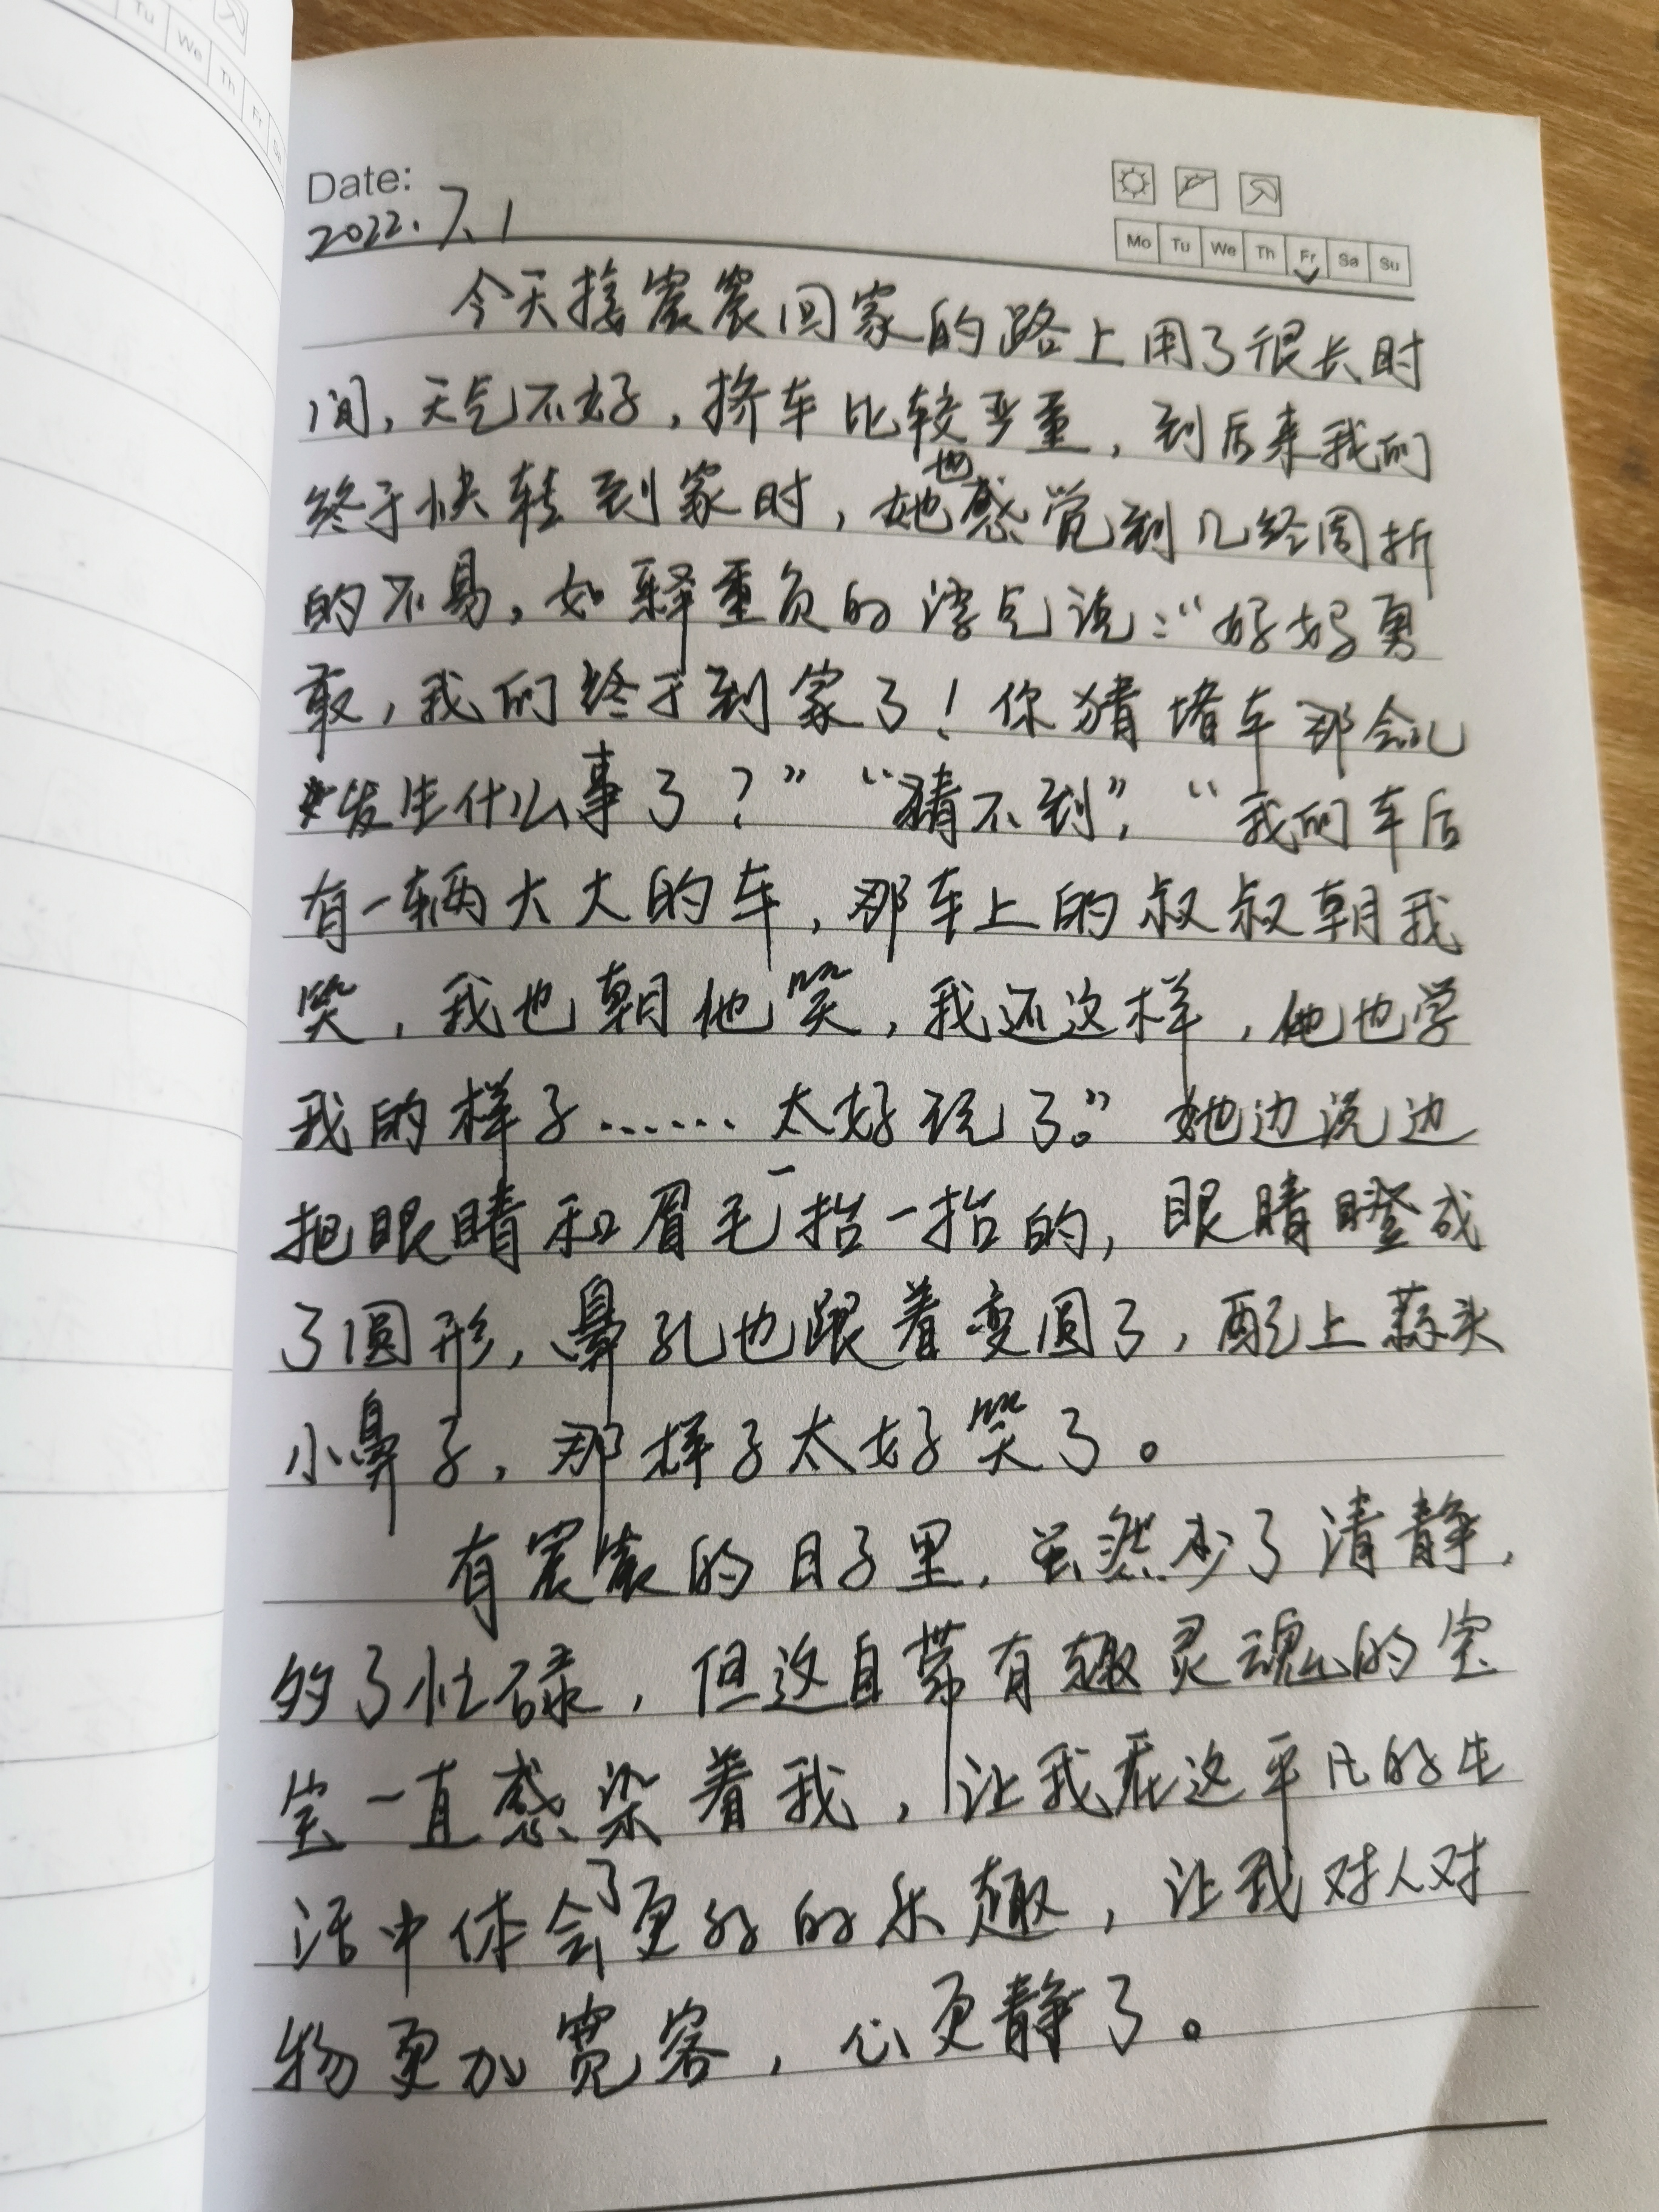 Tu We Th Fr Sa
Date:
2022.7.1
Mo Tu We Th Fr Sa Su
今天接宸宸回家的路上用了很长时
间,天气不好,挤车比较严重,到后来我们
终于快转到家时,她也感觉到几经周折
的不易,如释重负的语气说:“好妈勇
敢,我们终于到家了!你猜堵车那会儿
发生什么事了?”“猜不到”,“我们车后
有一辆大大的车,那车上的叔叔朝我
笑,我也朝他笑,我还这样,他也学
我的样子……太好玩了。”她边说边
把眼睛和眉毛一抬一抬的,眼睛瞪成
了圆形,鼻孔也跟着变圆了,配上蒜头
小鼻子,那样子太好笑了。
有宸宸的日子里,虽然少了清静,
多了忙碌,但这自带有趣灵魂的宝
宝一直感染着我,让我在这平凡的生
活中体会了更多的乐趣,让我对人对
物更加宽容,心更静了。